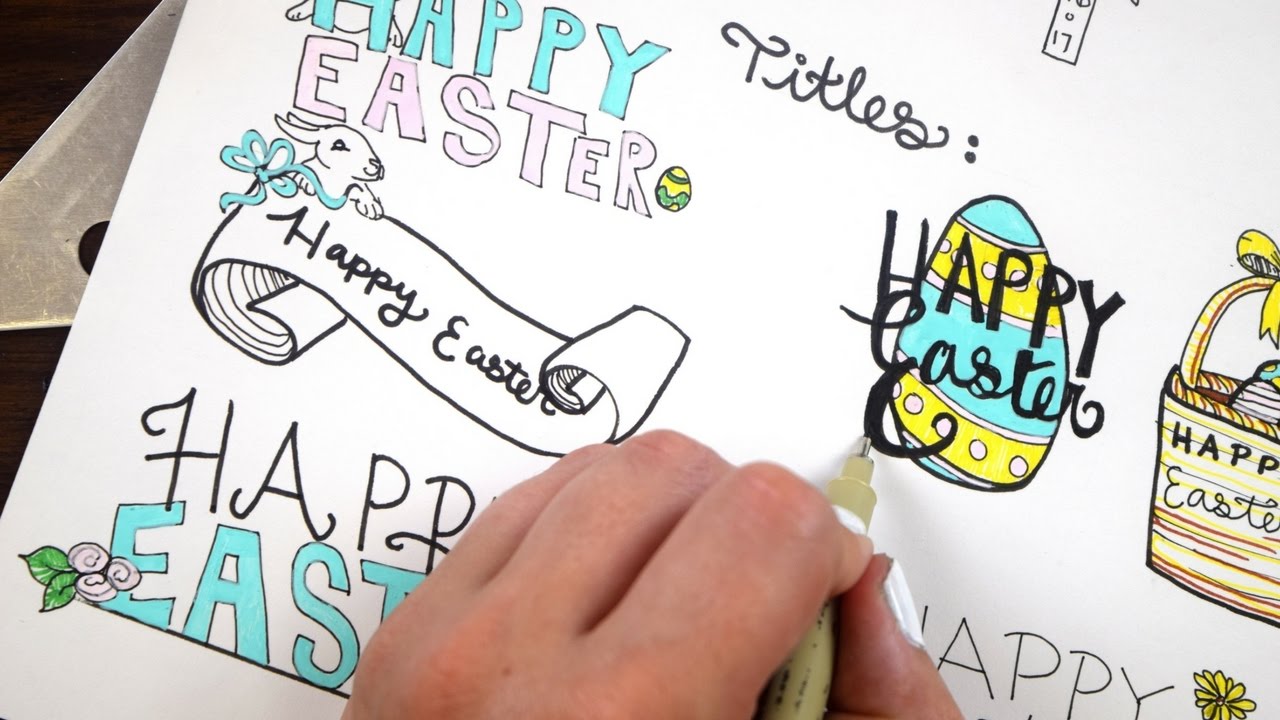 HAPPY
EASTER
Titles:
Happy Easter
HAPPY
Easter
HAPP
Easte
HAPP
EAST
HAPPY